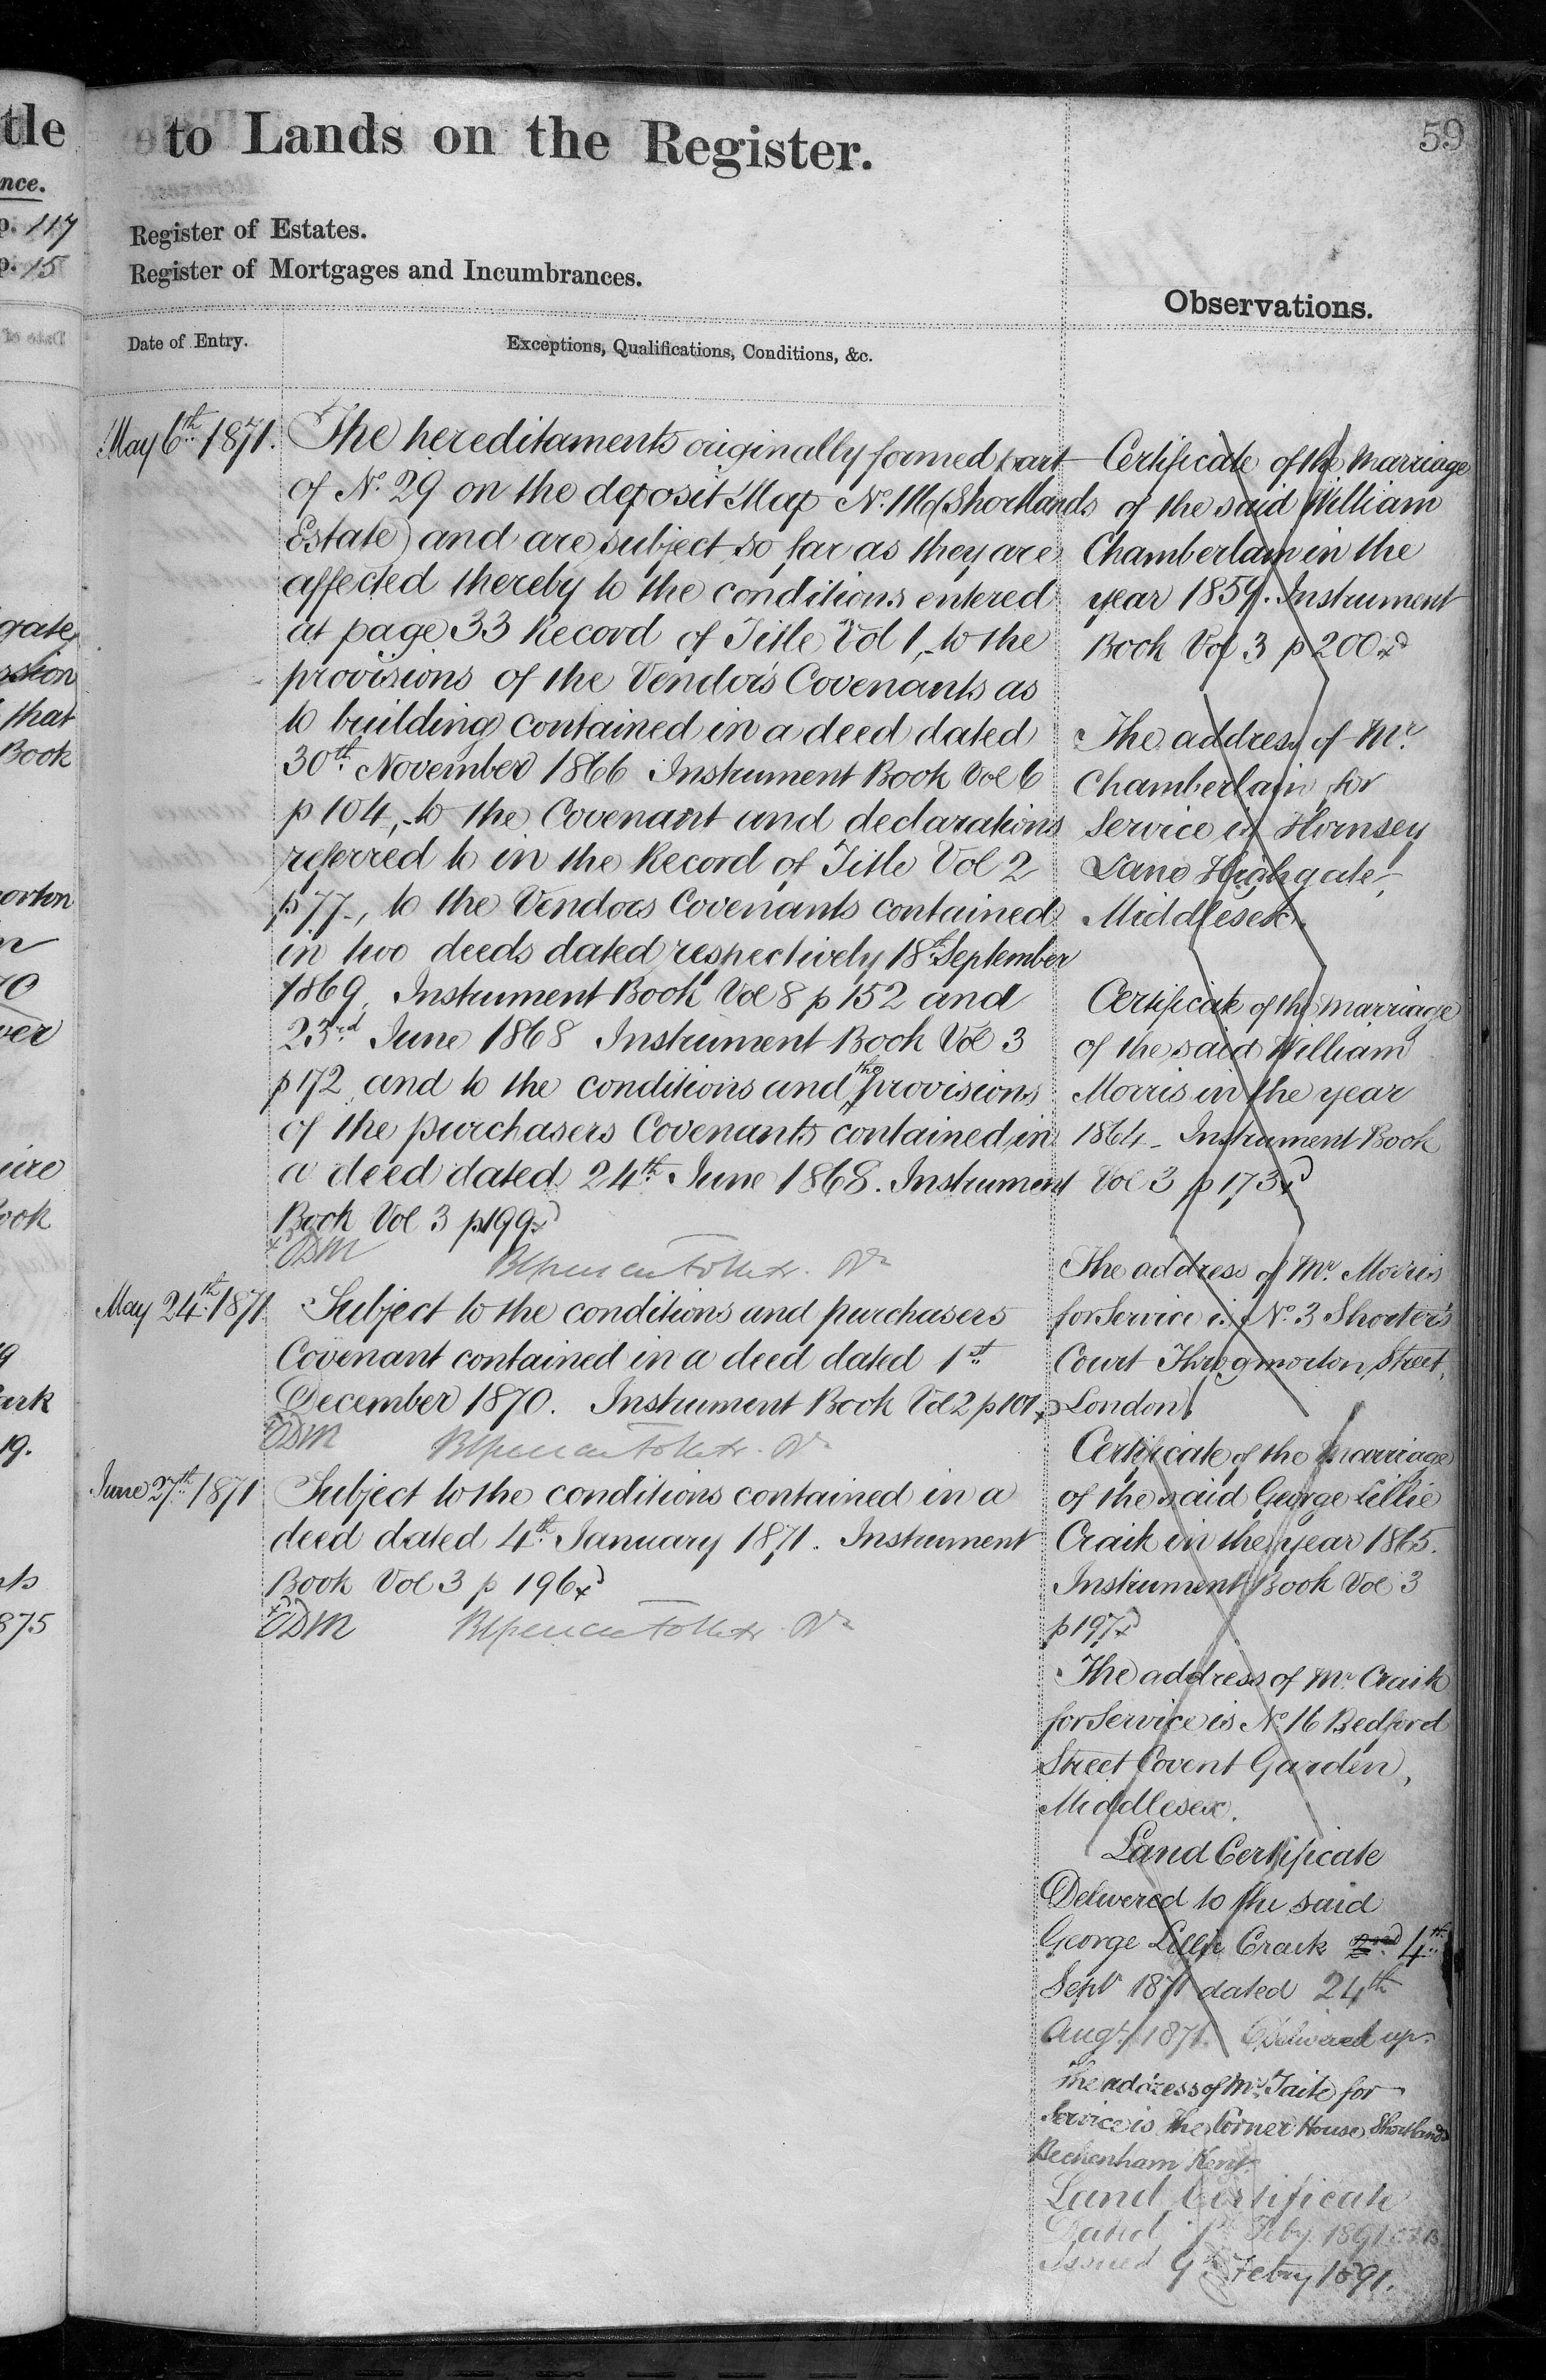 tle
nce.
p. 117
p. 15
gate,
ssion
that
Book
orton
70
ver
ook
19
ark
19.
1875
59
to Lands on the Register.
Register of Estates.
Register of Mortgages and Incumbrances.
Observations.
Date of Entry.
Exceptions, Qualifications, Conditions, &c.
May 6th 1871.
The hereditaments originally formed part
of No. 29 on the deposit Map No. 116 (Shortlands
Estate) and are subject so far as they are
affected thereby to the conditions entered
at page 33 Record of Title Vol 1, to the
provisions of the Vendor's Covenants as
to building contained in a deed dated
30th November 1866 Instrument Book Vol 6
p 104, to the Covenant and declarations
referred to in the Record of Title Vol 2
p 77, to the Vendors Covenants contained
in two deeds dated respectively 18th September
1869, Instrument Book Vol 8 p 152 and
23rd June 1868 Instrument Book Vol 3
p 172, and to the conditions and the provisions
of the purchasers Covenants contained in
a deed dated 24th June 1868. Instrument
Book Vol 3 p 199.
ODM
May 24th 1871
Subject to the conditions and purchasers
Covenant contained in a deed dated 1st
December 1870. Instrument Book Vol 2 p 101
ODM
June 27th 1871
Subject to the conditions contained in a
deed dated 4th January 1871. Instrument
Book Vol 3 p 196
ODM
Certificate of the marriage
of the said William
Chamberlain in the
year 1859. Instrument
Book Vol 3 p 200
The address of Mr.
Chamberlain for
Service is Hornsey
Lane Highgate,
Middlesex.
Certificate of the marriage
of the said William
Morris in the year
1864 - Instrument Book
Vol 3 p 173
The address of Mr. Morris
for Service is No. 3 Shorter's
Court Throgmorton Street,
London.
Certificate of the marriage
of the said George Lillie
Craik in the year 1865.
Instrument Book Vol 3
p 197
The address of Mr. Craik
for Service is No 16 Bedford
Street Covent Garden,
Middlesex.
Land Certificate
Delivered to the said
George Lillie Craik 2nd 4th
Sept 1871 dated 24th
Augt 1871. Delivered up.
The address of Mr. Taite for
Service is The Corner House Shortlands
Beckenham Kent.
Land Certificate
Dated 1st Feby 1891
Issued 9th Febry 1891.